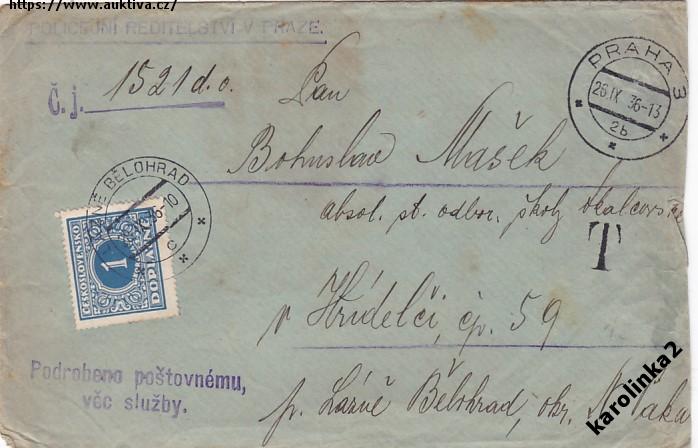 https://www.auktiva.cz/
POLICEJNÍ ŘEDITELSTVÍ V PRAZE.
Č. j. 1521 d. o.
PRAHA 3
26 IX 36-13
2b
Pan
Bohuslav Mašek
LÁZNĚ BĚLOHRAD
c
absol. st. odbor. školy
T
ČESKOSLOVENSKO
1
DOPLATNÉ
v Hřídelči, čp. 59
Podrobeno poštovnému,
věc služby.
p. Lázně Bělohrad, okr. N. Paka
karolinka2